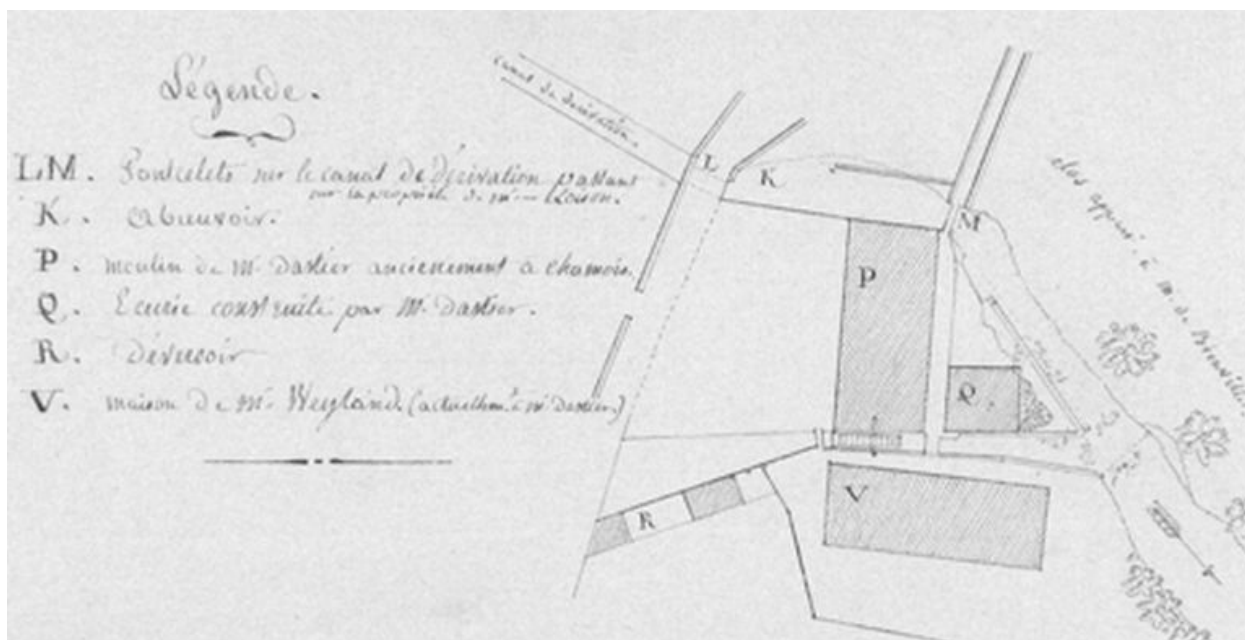 Légende.
LM. Pontcelets sur le canal de dérivation passant
sur la propriété de mr Loison.
K. abreuvoir.
P. moulin de Mr. Dastier anciennement à chamois.
Q. Ecurie construite par M. Dastier.
R. Déversoir
V. maison de Mr. Weyland (actuellemt. à Mr dastier.)
Canal de dérivation.
L
K
M
clos appné à m. de
P
Q.
R
V